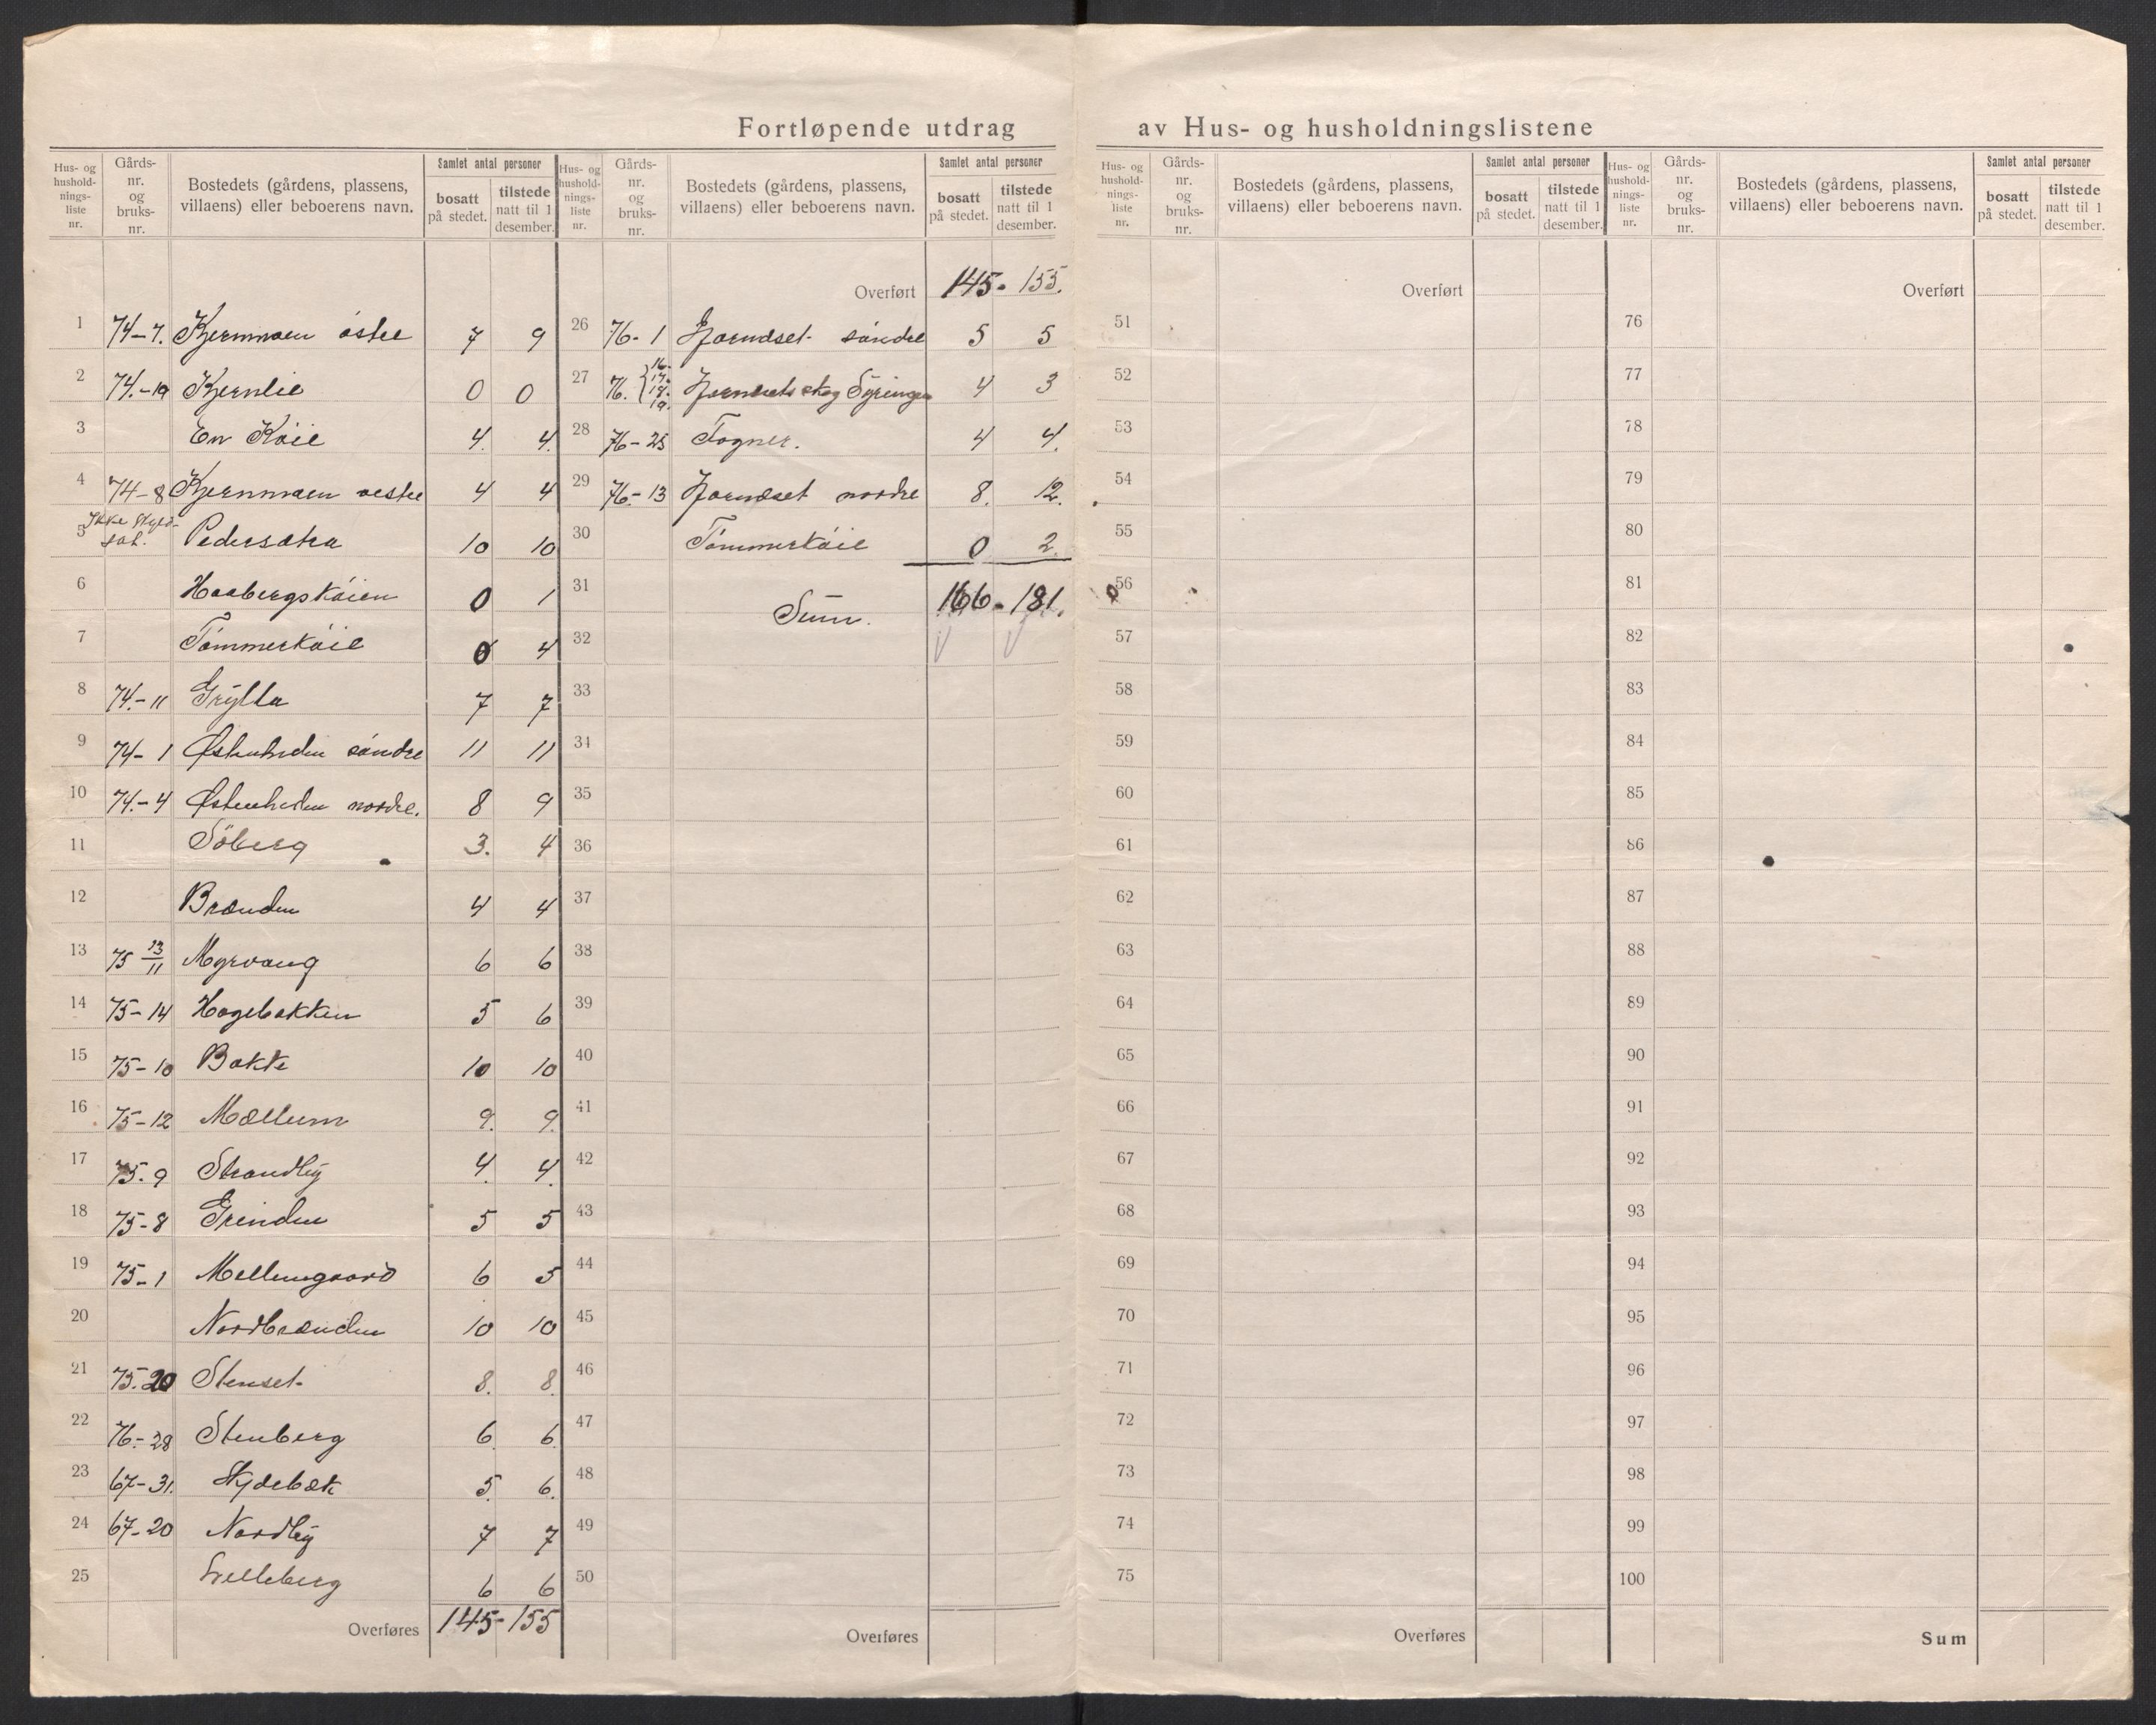 Fortløpende utdrag av Hus- og husholdningslistene
Hus- og hushold-nings-liste nr. Gårds-nr. og bruks-nr. Bostedets (gårdens, plassens, villaens) eller beboerens navn. Samlet antal personer bosatt på stedet. tilstede natt til 1 desember.
1 74-7. Kjernmoen östre 7 9
2 74.-19 Kjernlie 0 0
3 En Köie 4. 4.
4 74-8 Kjernmoen vestre 4 4
5 Ikke skyld-sat. Pedersætra 10 10
6 Haabergsköien 0 1
7 Tömmerköie 0 4
8 74.-11 Grytta 7 7
9 74-1 Østenheden söndre 11 11
10 74.-4 Østenheden nordre. 8 9
11 Söberg 3. 4
12 Brænden 4 4
13 75 13/11 Myrvang 6 6
14 75-14 Hagebakken 5 6
15 75-10 Bakke 10 10
16 75-12 Mællum 9. 9.
17 75.-9 Strandby 4. 4.
18 75-8 Grinden 5 5
19 75-1 Mellemgaard 6 5
20 Nordbrænden 10 10
21 75.20 Stenset 8. 8.
22 76.-28 Stenberg 6 6
23 67-31. Skydebæk 5. 6.
24 67-20 Nordby 7 7
25 Lilleberg 6 6
Overføres 145-155
Hus- og hushold-nings-liste nr. Gårds-nr. og bruks-nr. Bostedets (gårdens, plassens, villaens) eller beboerens navn. Samlet antal personer bosatt på stedet. tilstede natt til 1 desember.
Overført 145-155.
26 76-1 söndre 5 5
27 76. 16. 17. 18. 19. 4 3
28 76-25 Fogner. 4 4.
29 76-13 nordre 8. 12.
30 Tömmerköie 0 2.
31 Sum. 166-181.
32
33
34
35
36
37
38
39
40
41
42
43
44
45
46
47
48
49
50
Overføres
Hus- og hushold-nings-liste nr. Gårds-nr. og bruks-nr. Bostedets (gårdens, plassens, villaens) eller beboerens navn. Samlet antal personer bosatt på stedet. tilstede natt til 1 desember.
Overført
51
52
53
54
55
56
57
58
59
60
61
62
63
64
65
66
67
68
69
70
71
72
73
74
75
Overføres
Hus- og hushold-nings-liste nr. Gårds-nr. og bruks-nr. Bostedets (gårdens, plassens, villaens) eller beboerens navn. Samlet antal personer bosatt på stedet. tilstede natt til 1 desember.
Overført
76
77
78
79
80
81
82
83
84
85
86
87
88
89
90
91
92
93
94
95
96
97
98
99
100
Sum